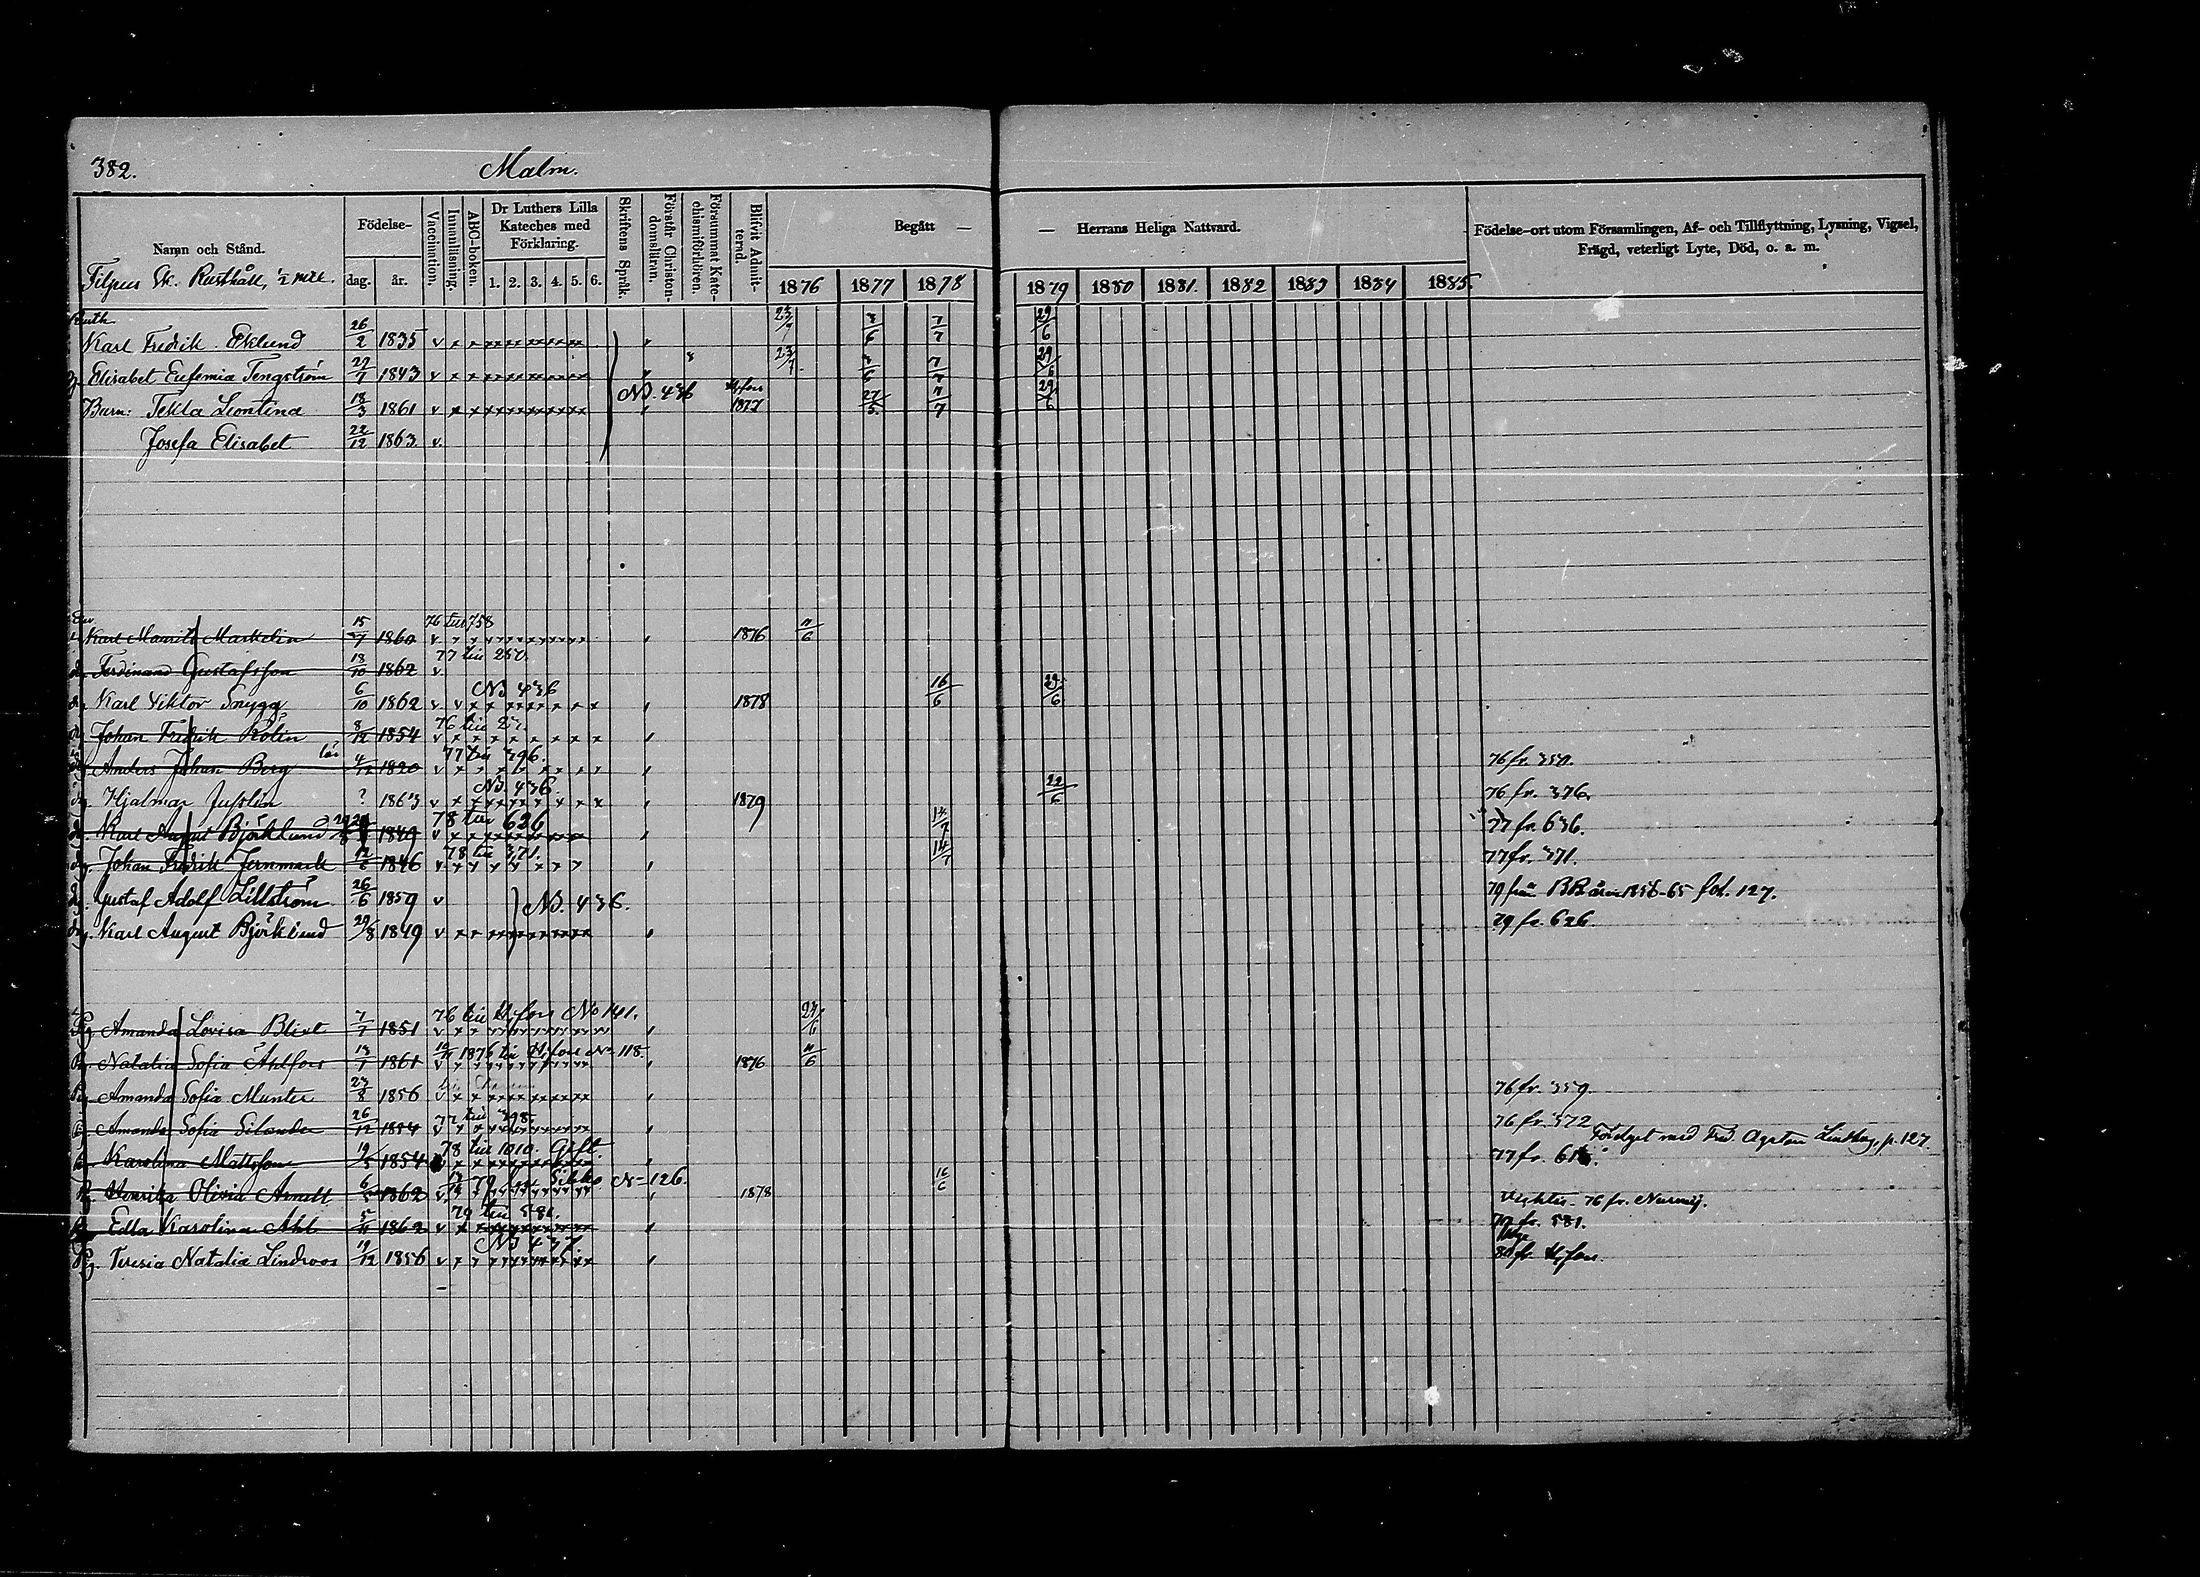 382. Malm.
Namn och Stånd. Födelse- dag. år. Vaccination. Innanläsning. ABC-boken. Dr Luthers Lilla Kateches med Förklaring. 1. 2. 3. 4. 5. 6. Skriftens Språk. Förstår Christendomsläran. Försummat Katechismiförhören. Blifvit Admitterad. Begått — — Herrans Heliga Nattvard. Födelse-ort utom Församlingen, Af- och Tillflyttning, Lysning, Vigsel, Frägd, veterligt Lyte, Död, o. a. m.
1876 1877 1878 1879 1880 1881. 1882 1883 1884 1885.
Filpus Rusthåll, 1/2 mtl.
Karl Fredrik Eklund 26/2 1835 v 23/7 7/7 29/6
Elisabet Eufemia Tengström 27/7 1843 v 23/7 7/7 29/6
Barn: Tekla Leontina 18/3 1861 v NB. 436 H:fors 1877 27/5 7/7 29/6
Josefa Elisabet 22/12 1863 v.
Karl Mauritz Markelin 15/7 1860 v 76 till 758 1876 11/6
Ferdinand Gustafsson 18/10 1862 v 77 till 250.
Karl Viktor Snygg 6/10 1862 v v NB. 436 1878 16/6 29/6
Johan Fredrik Rolin 8/12 1854 v 76 till 27.
Anders Johan Berg 4/12 1820 v 77 till 396. 76 fr. 350.
Hjalmar Jusslin ? 1863 v NB. 436. 1879 22/6 76 fr. 376.
Karl August Björklund 29/8 1849 v 78 till 626 14/7 77 fr. 636.
Johan Fredrik Jernmark 12/6 1846 v 78 till 371. 14/7 77 fr. 371.
Gustaf Adolf Lillström 26/6 1859 v NB. 436. 79 från BB åren 1856-65 fol. 127.
Karl August Björklund 29/8 1849 v 79 fr. 626.
Amanda Lovisa Blixt 7/7 1851 v 76 till H:fors No 141. 24/6
Natalia Sofia Åhlfors 13/7 1861 v 1876 till H:fors No 118. 1876 11/6
Amanda Sofia Munter 27/8 1856 v 76 fr. 359.
Amanda Sofia Silander 26/12 1854 v 77 till 398. 76 fr. 372
Karolina Mattsson 19/5 1854 78 till 1010. Gift. 77 fr. Förlofvet med Fred. Lindberg, p. 127.
Olivia Arnell 6/5 1862 v 79 No 126. 1878 16/6 76 fr. Nurmij.
Edla Karolina Ahl 5/11 1862 v 79 till 581. 77 fr. 581.
Teresia Natalia Lindroos 19/12 1856 v NB 437 80 fr. H:fors.